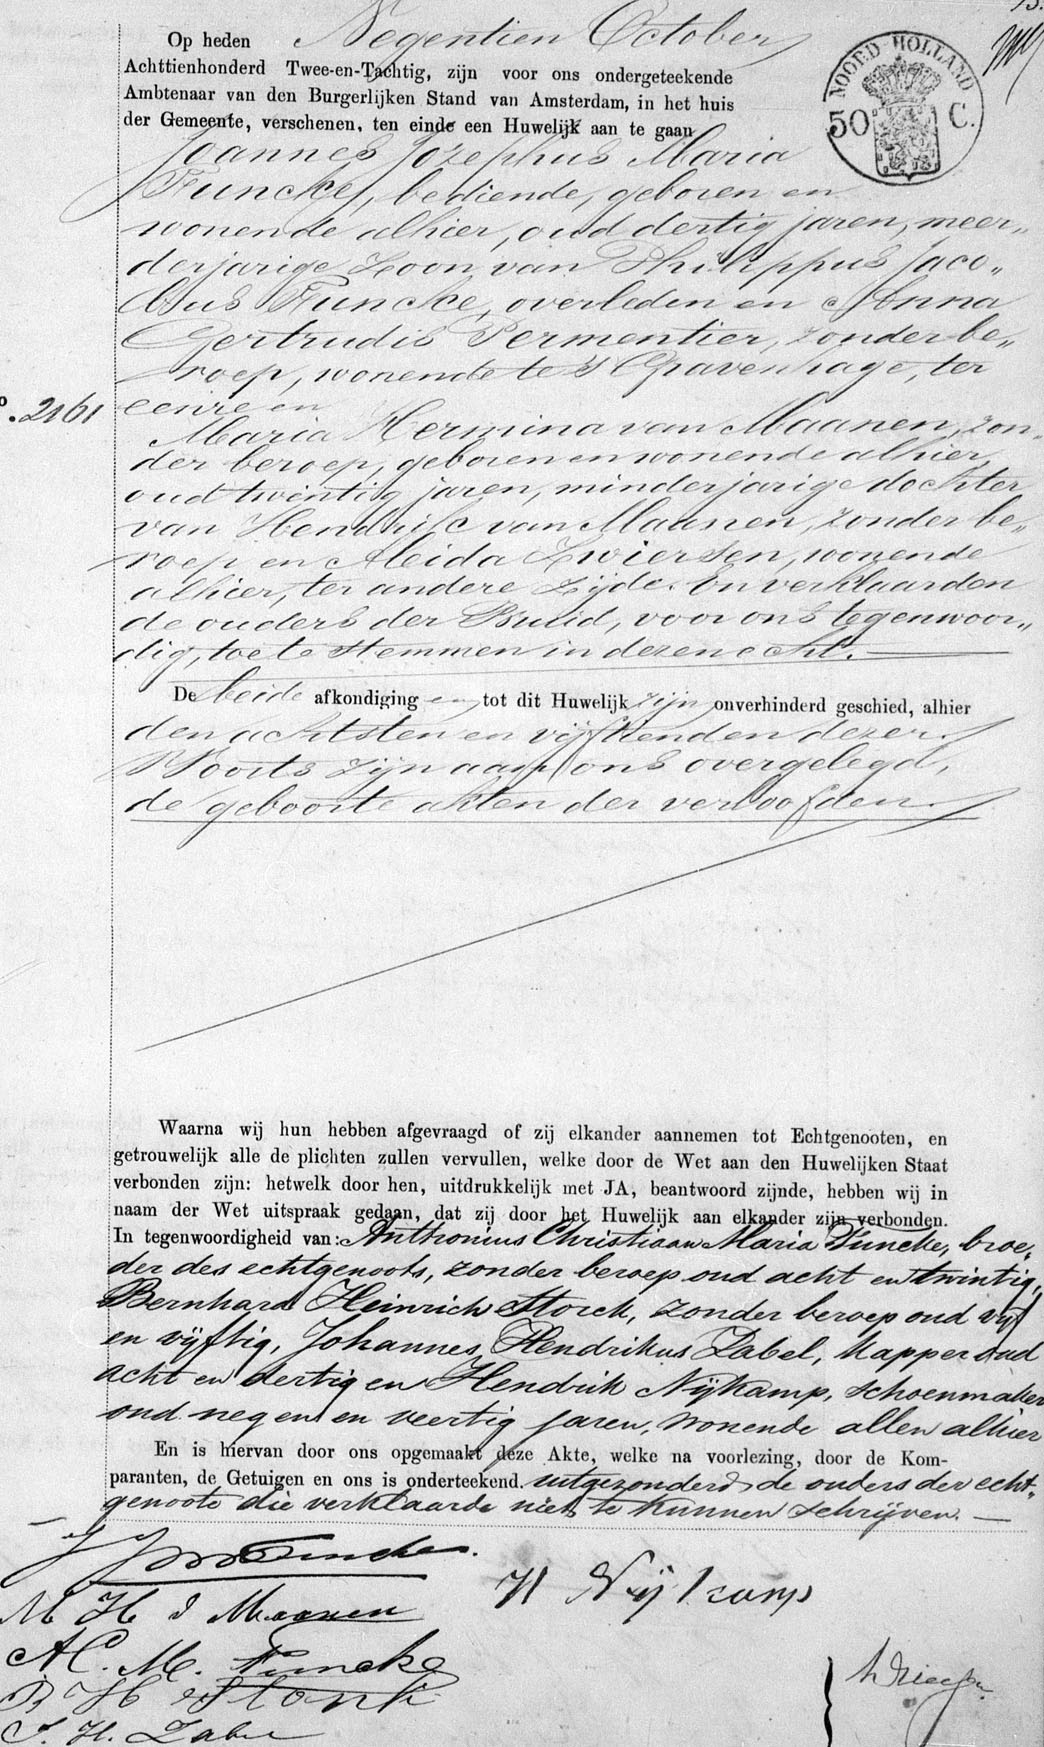 Op heden Negentien October
Achttienhonderd Twee-en-Tachtig, zijn voor ons ondergeteekende
Ambtenaar van den Burgerlijken Stand van Amsterdam, in het huis
der Gemeente, verschenen, ten einde een Huwelijk aan te gaan
NOORD-HOLLAND
50 C.
Joannes Jozephus Maria
Funcke, bediende, geboren en
wonende alhier, oud dertig jaren, meer„
derjarige Zoon van Philippus Jaco„
bus Funcke, overleden en Anna
Gertrudis Permentier, zonder be„
roep, wonende te 's Gravenhage, ter
eenre en
o. 2161
Maria Hermina van Maanen, zon„
der beroep, geboren en wonende alhier,
oud twintig jaren, minderjarige dochter
van Hendrik van Maanen, zonder be„
roep en Aleida Zwiersen, wonende
alhier, ter andere Zijde. En verklaarden
de ouders der Bruid, voor ons tegenwoor„
dig, toe te stemmen in dezen echt.
De beide afkondigingen tot dit Huwelijk zijn onverhinderd geschied, alhier
den achtsten en vijftienden dezer.
Voorts zijn aan ons overgelegd,
de geboorte akten der verloofden.
Waarna wij hun hebben afgevraagd of zij elkander aannemen tot Echtgenooten, en
getrouwelijk alle de plichten zullen vervullen, welke door de Wet aan den Huwelijken Staat
verbonden zijn: hetwelk door hen, uitdrukkelijk met JA, beantwoord zijnde, hebben wij in
naam der Wet uitspraak gedaan, dat zij door het Huwelijk aan elkander zijn verbonden.
In tegenwoordigheid van: Anthonius Christiaan Maria Funcke, broe„
der des echtgenoots, zonder beroep oud acht en twintig,
Bernhard Heinrich Storck, zonder beroep oud vijf
en vijftig, Johannes Hendrikus Zabel, kapper oud
acht en dertig en Hendrik Nijkamp, schoenmaker
oud negen en veertig jaren, wonende allen alhier
En is hiervan door ons opgemaakt deze Akte, welke na voorlezing, door de Kom-
paranten, de Getuigen en ons is onderteekend. uitgezonderd de ouders der echt„
genoote die verklaarde niet te kunnen schrijven.
Funcke.
M H v Maanen
H Nijkamp
A C. M. Funcke
B H Stork
J. H. Zabel